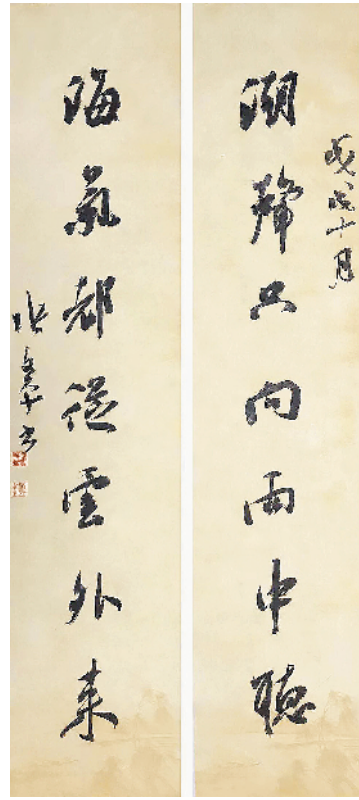 戊戌十月
潮聲只向雨中聽
海氣都從雲外來